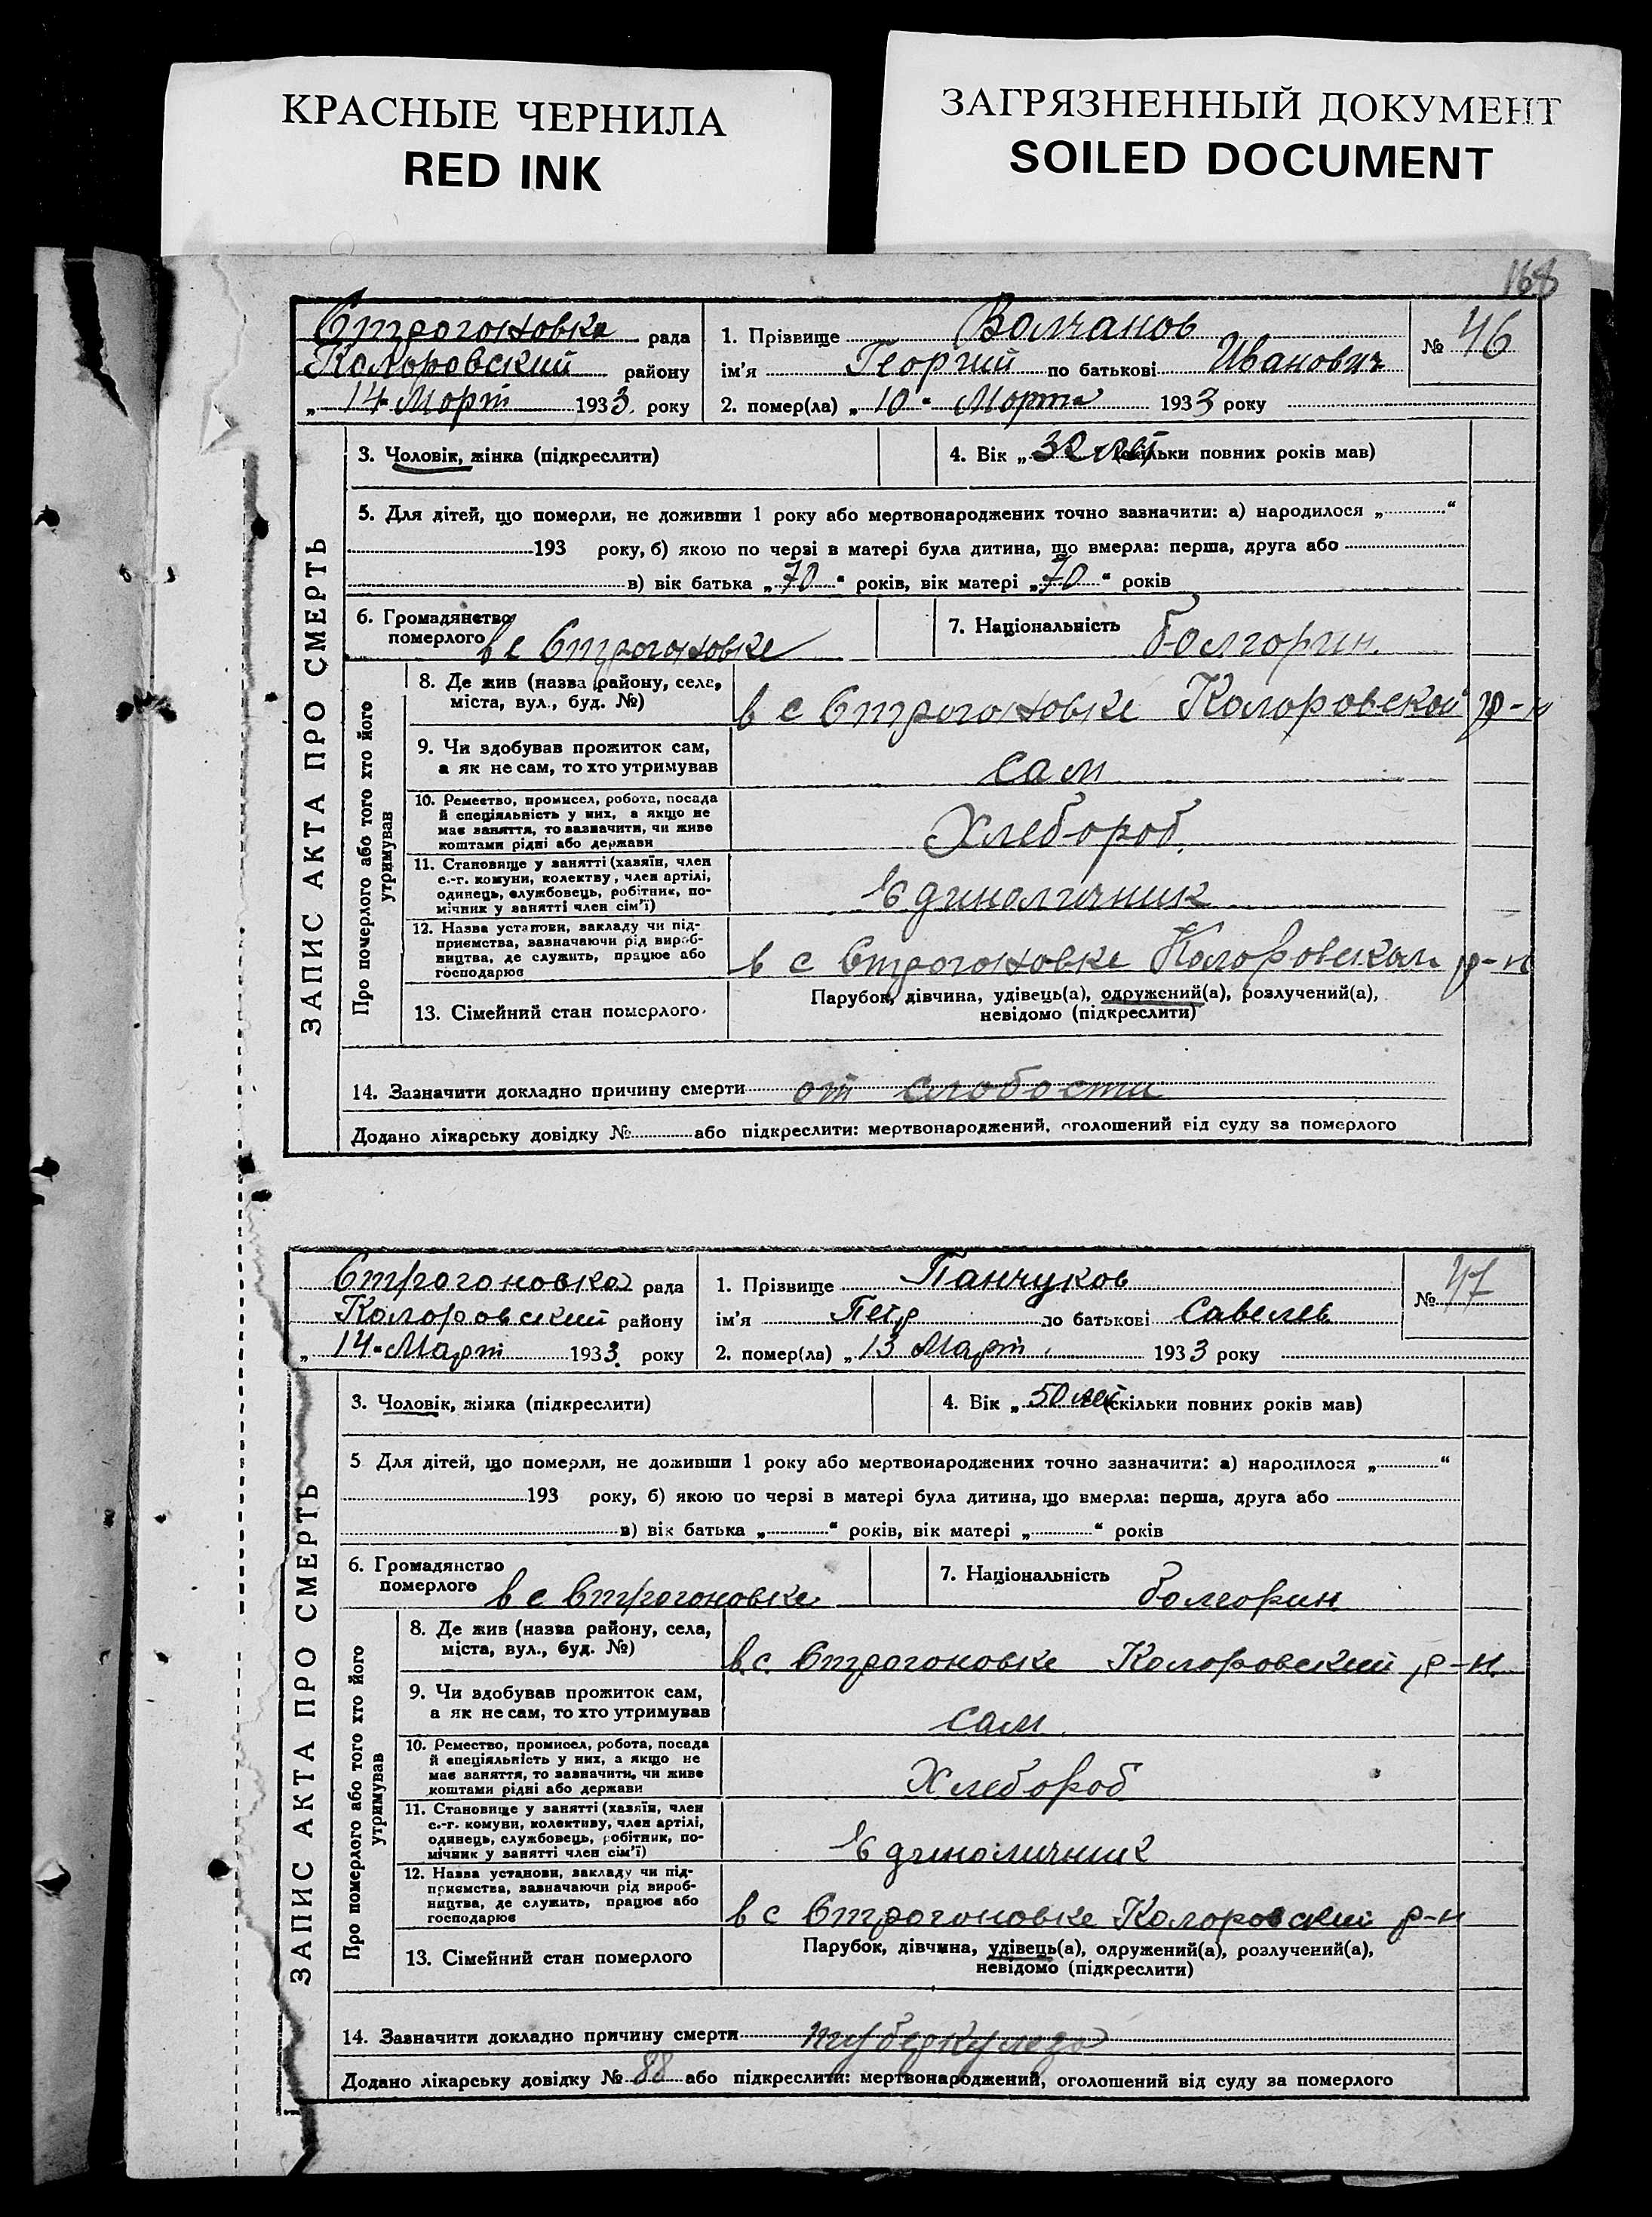 КРАСНЫЕ ЧЕРНИЛА
RED INK
ЗАГРЯЗНЕННЫЙ ДОКУМЕНТ
SOILED DOCUMENT
168
Строгоновка рада
Коларовский району
„ 14 " Март 1933 року
1. Прізвище Волчанов
ім'я Георгий по батькові Иванович
2. помер(ла) „ 10 " Марта 1933 року
№ 46
ЗАПИС АКТА ПРО СМЕРТЬ
3. Чоловік, жінка (підкреслити)
4. Вік „ 32 лет (скільки повних років мав)
5. Для дітей, що померли, не доживши 1 року або мертвонароджених точно зазначити: а) народилося „ "
193 року, б) якою по черзі в матері була дитина, що вмерла: перша, друга або
в) вік батька „ 70 " років, вік матері „ 70 " років
6. Громадянство
померлого в с Строгоновке
7. Національність болгорин.
Про померлого або того хто його
утримував
8. Де жив (назва району, села,
міста, вул., буд. №)
в с Строгоновке Колоровской р-н
9. Чи здобував прожиток сам,
а як не сам, то хто утримував
сам
10. Ремество, промисел, робота, посада
й спеціяльність у них, а якщо не
має заняття, то зазначити, чи живе
коштами рідні або держави
Хлебороб.
11. Становище у занятті (хазяїн, член
с.-г. комуни, колективу, член артілі,
одинець, службовець, робітник, по-
мічник у занятті член сім'ї)
Единоличник
12. Назва установи, закладу чи під-
приємства, зазначаючи рід вироб-
ництва, де служить, працює або
господарює
в с Строгоновке р-н
13. Сімейний стан померло́го
Парубок, дівчина, удівець(а), одружений(а), розлучений(а),
невідомо (підкреслити)
14. Зазначити докладно причину смерти от слобости
Додано лікарську довідку № або підкреслити: мертвонароджений, оголошений від суду за померлого
Строгоновка рада
Колоровский району
„ 14 " Март 1933 року
1. Прізвище Панчуков
ім'я Петр по батькові Савелев
2. помер(ла) „ 13 Март 1933 року
№ 47
ЗАПИС АКТА ПРО СМЕРТЬ
3. Чоловік, жінка (підкреслити)
4. Вік „ 50 лет (скільки повних років мав)
5 Для дітей, що померли, не доживши 1 року або мертвонароджених точно зазначити: а) народилося „ "
193 року, б) якою по черзі в матері була дитина, що вмерла: перша, друга або
в) вік батька „ " років, вік матері „ " років
6. Громадянство
померлого в с Строгоновке
7. Національність болгорин
Про померлого або того хто його
утримував
8. Де жив (назва району, села,
міста, вул., буд. №)
в с. Строгоновке Колоровский р-н.
9. Чи здобував прожиток сам,
а як не сам, то хто утримував
сам
10. Ремество, промисел, робота, посада
й спеціяльність у них, а якщо не
має заняття, то зазначити, чи живе
коштами рідні або держави
Хлебороб
11. Становище у занятті (хазяїн, член
с.-г. комуни, колективу, член артілі,
одинець, службовець, робітник, по-
мічник у занятті член сім'ї)
Единоличник
12. Назва установи, закладу чи під-
приємства, зазначаючи рід вироб-
ництва, де служить, працює або
господарює
в с Строгоновке Колоровский р-н
13. Сімейний стан померлого
Парубок, дівчина, удівець(а), одружений(а), розлучений(а),
невідомо (підкреслити)
14. Зазначити докладно причину смерти туберкулеза
Додано лікарську довідку № 88 або підкреслити: мертвонароджений, оголошений від суду за померлого